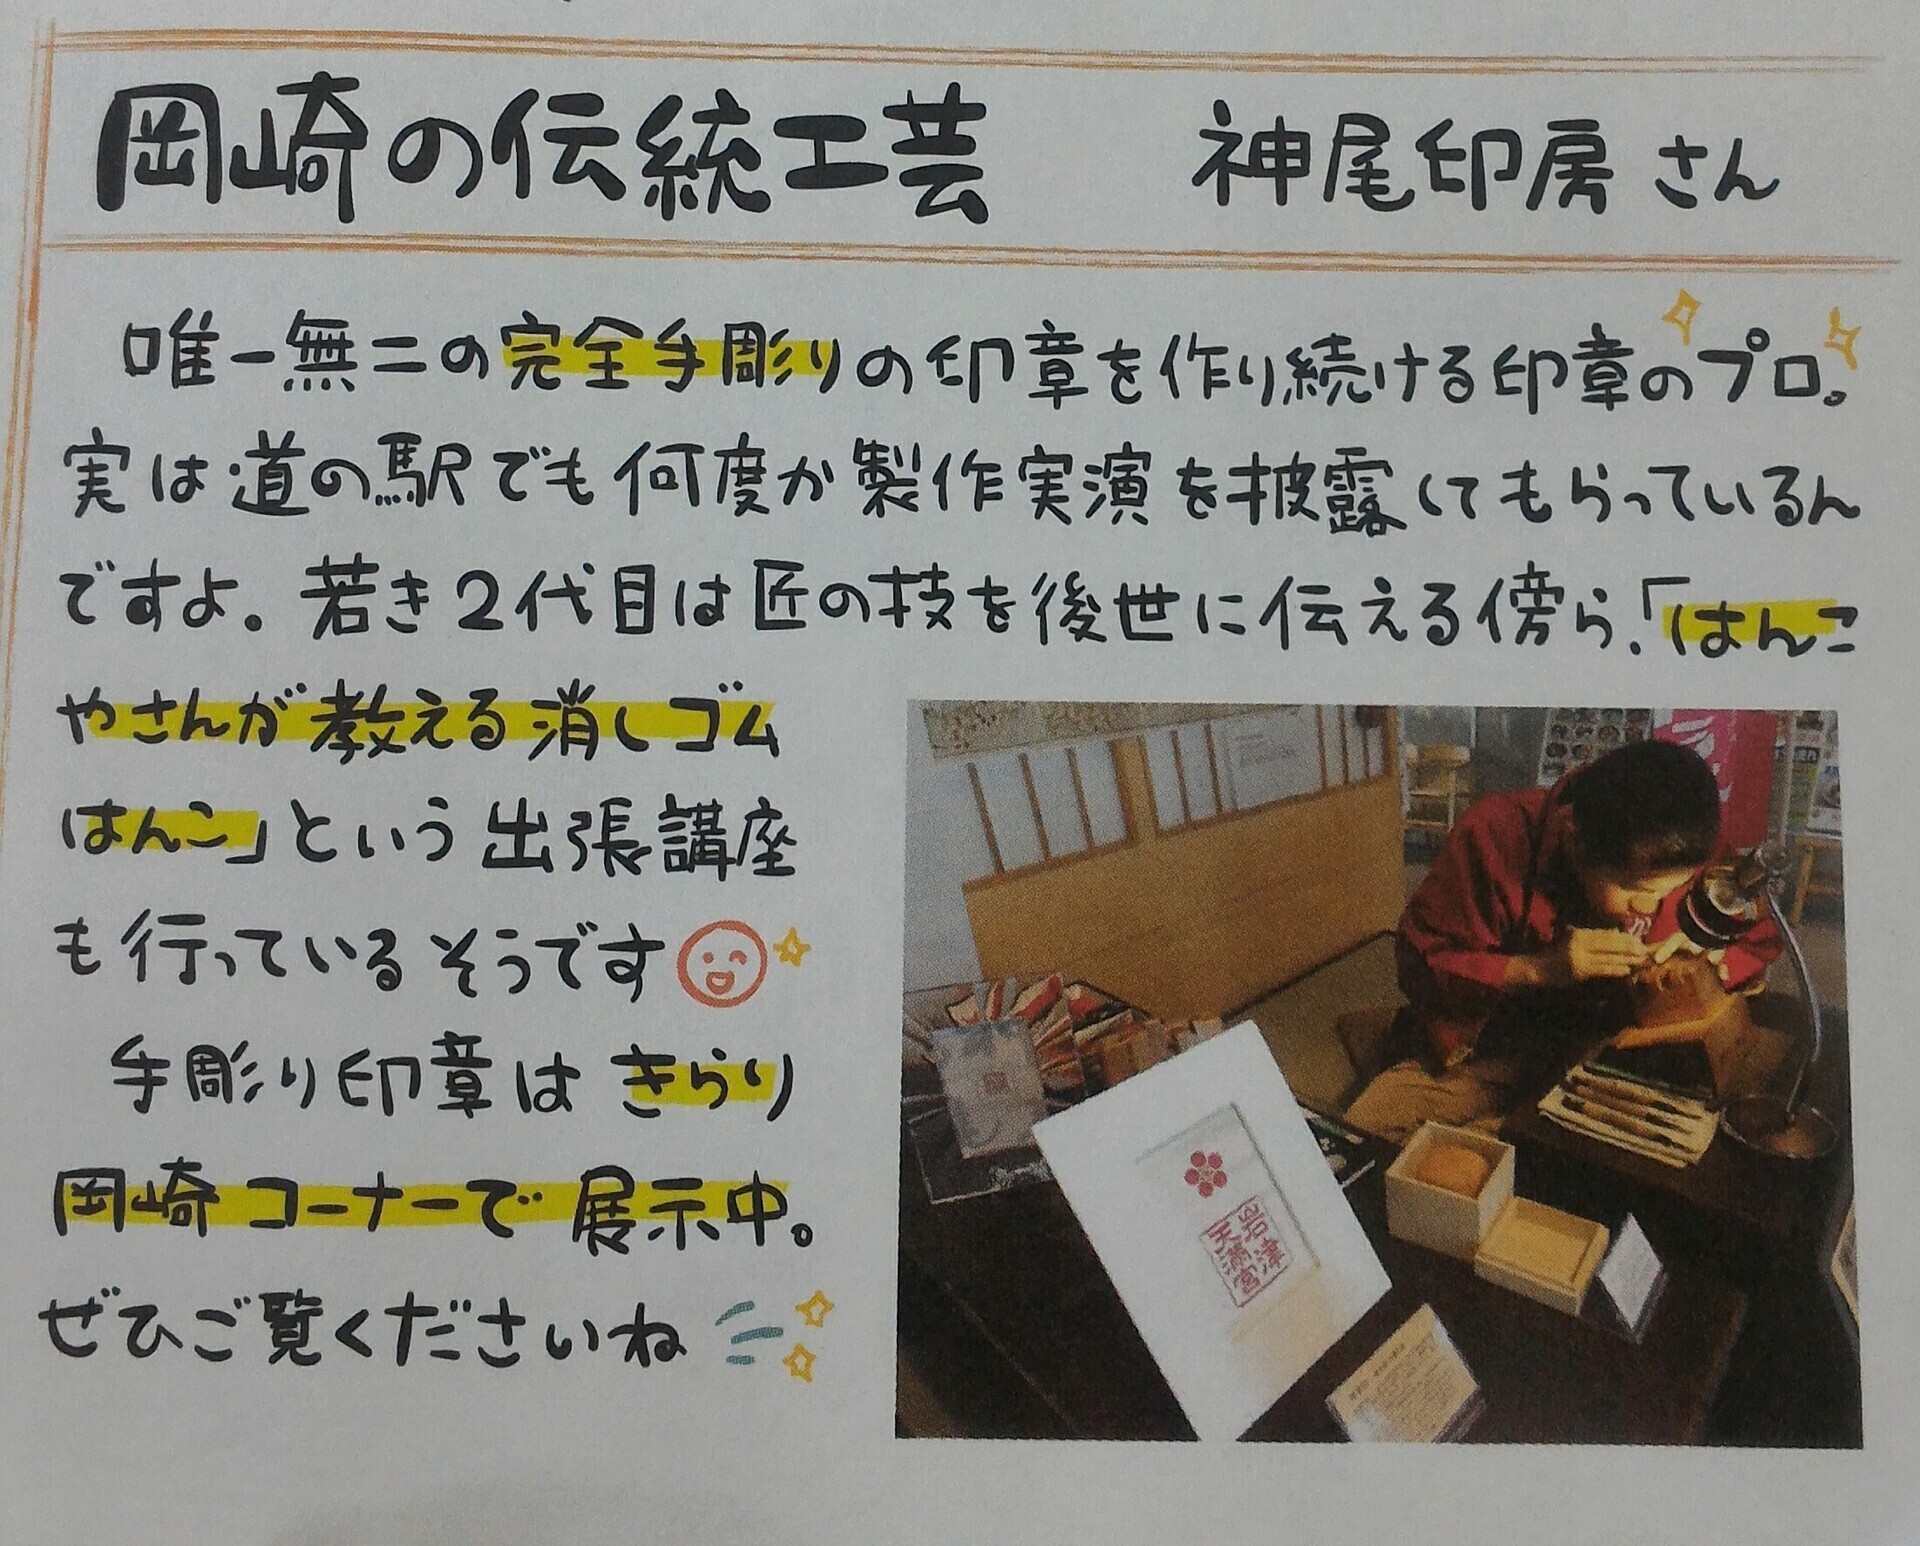 岡崎の伝統工芸 神尾印房さん
唯一無二の完全手彫りの印章を作り続ける印章のプロ。
実は道の駅でも何度か製作実演を披露してもらっているん
ですよ。若き2代目は匠の技を後世に伝える傍ら、「はんこ
やさんが教える消しゴム
はんこ」という出張講座
も行っているそうです
手彫り印章はきらり
岡崎コーナーで展示中。
ぜひご覧くださいね
岩津
天満宮